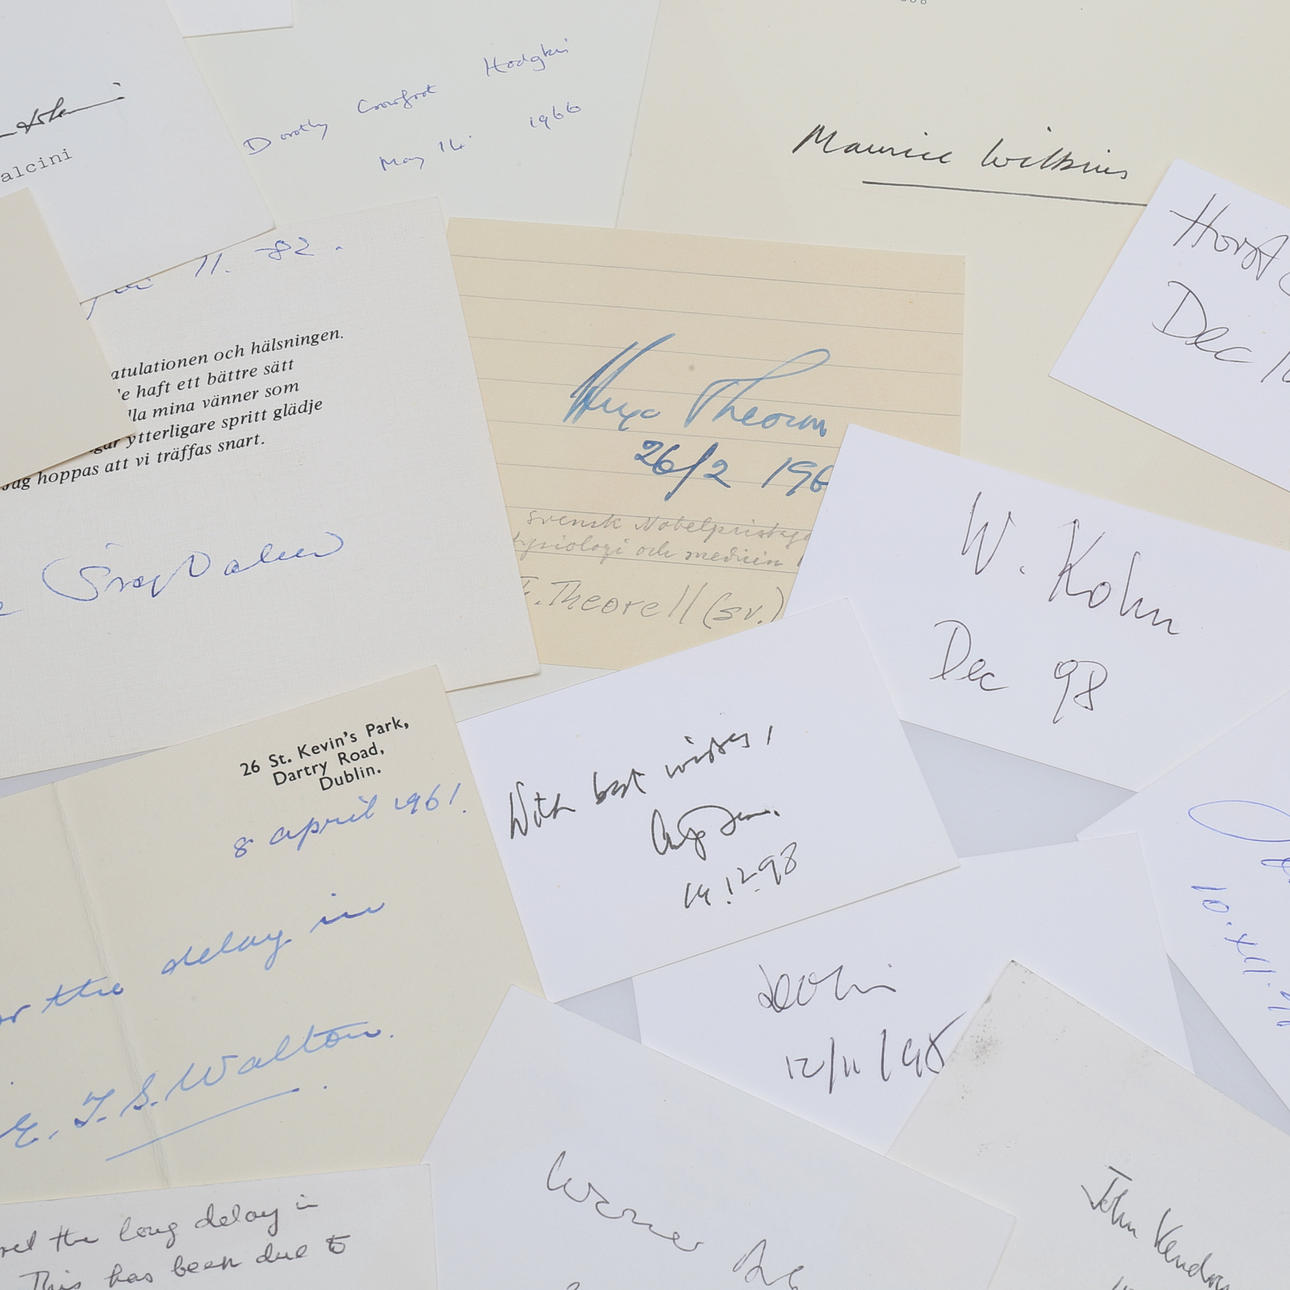 alcini
Dorothy Crowfoot Hodgkin
May 14. 1966
Maurice Wilkins
Horst
Dec
11. 82.
atulationen och hälsningen.
haft ett bättre sätt
lla mina vänner som
ytterligare spritt glädje
Jag hoppas att vi träffas snart.
Hugo Theorell
26/2 196
svensk Nobelpristaga
fysiologi och medicin
Theorell (sv.)
W. Kohn
Dec 98
26 St. Kevin's Park,
Dartry Road,
Dublin.
8 april 1961.
or the delay in
E. T. S. Walton.
With best wishes,
14.12.98
12/11/98
10.XII.
ret the long delay in
This has been due to
Werner
John Kendrew